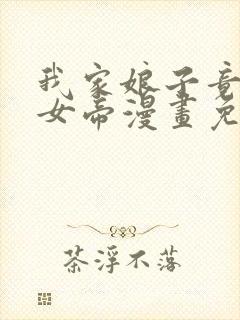 我家娘子竟
女帝漫畫免
茶浮不落